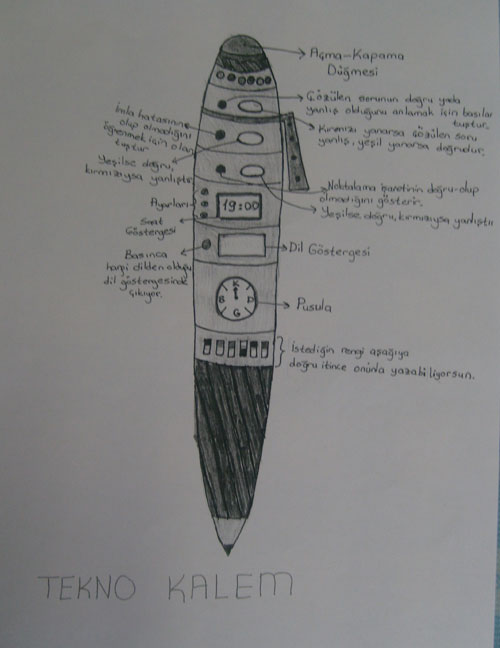 Açma-Kapama
Düğmesi
Çözülen sorunun doğru yada
yanlış olduğunu anlamak için basılan
tuştur.
Kırmızı yanarsa çözülen soru
yanlış, yeşil yanarsa doğrudur.
İmla hatasının
olup olmadığını
öğrenmek için olan
tuştur
Yeşilse doğru,
kırmızıysa yanlıştır
Noktalama işaretinin doğru olup
olmadığını gösterir.
Yeşilse, doğru, kırmızıysa yanlıştır
Ayarları
19:00
Saat
Göstergesi
Basınca
hangi dilden olduğu
dil göstergesinde
çıkıyor.
Dil Göstergesi
K
B D
G
Pusula
İstediğin rengi aşağıya
doğru itince onunla yazabiliyorsun.
TEKNO KALEM